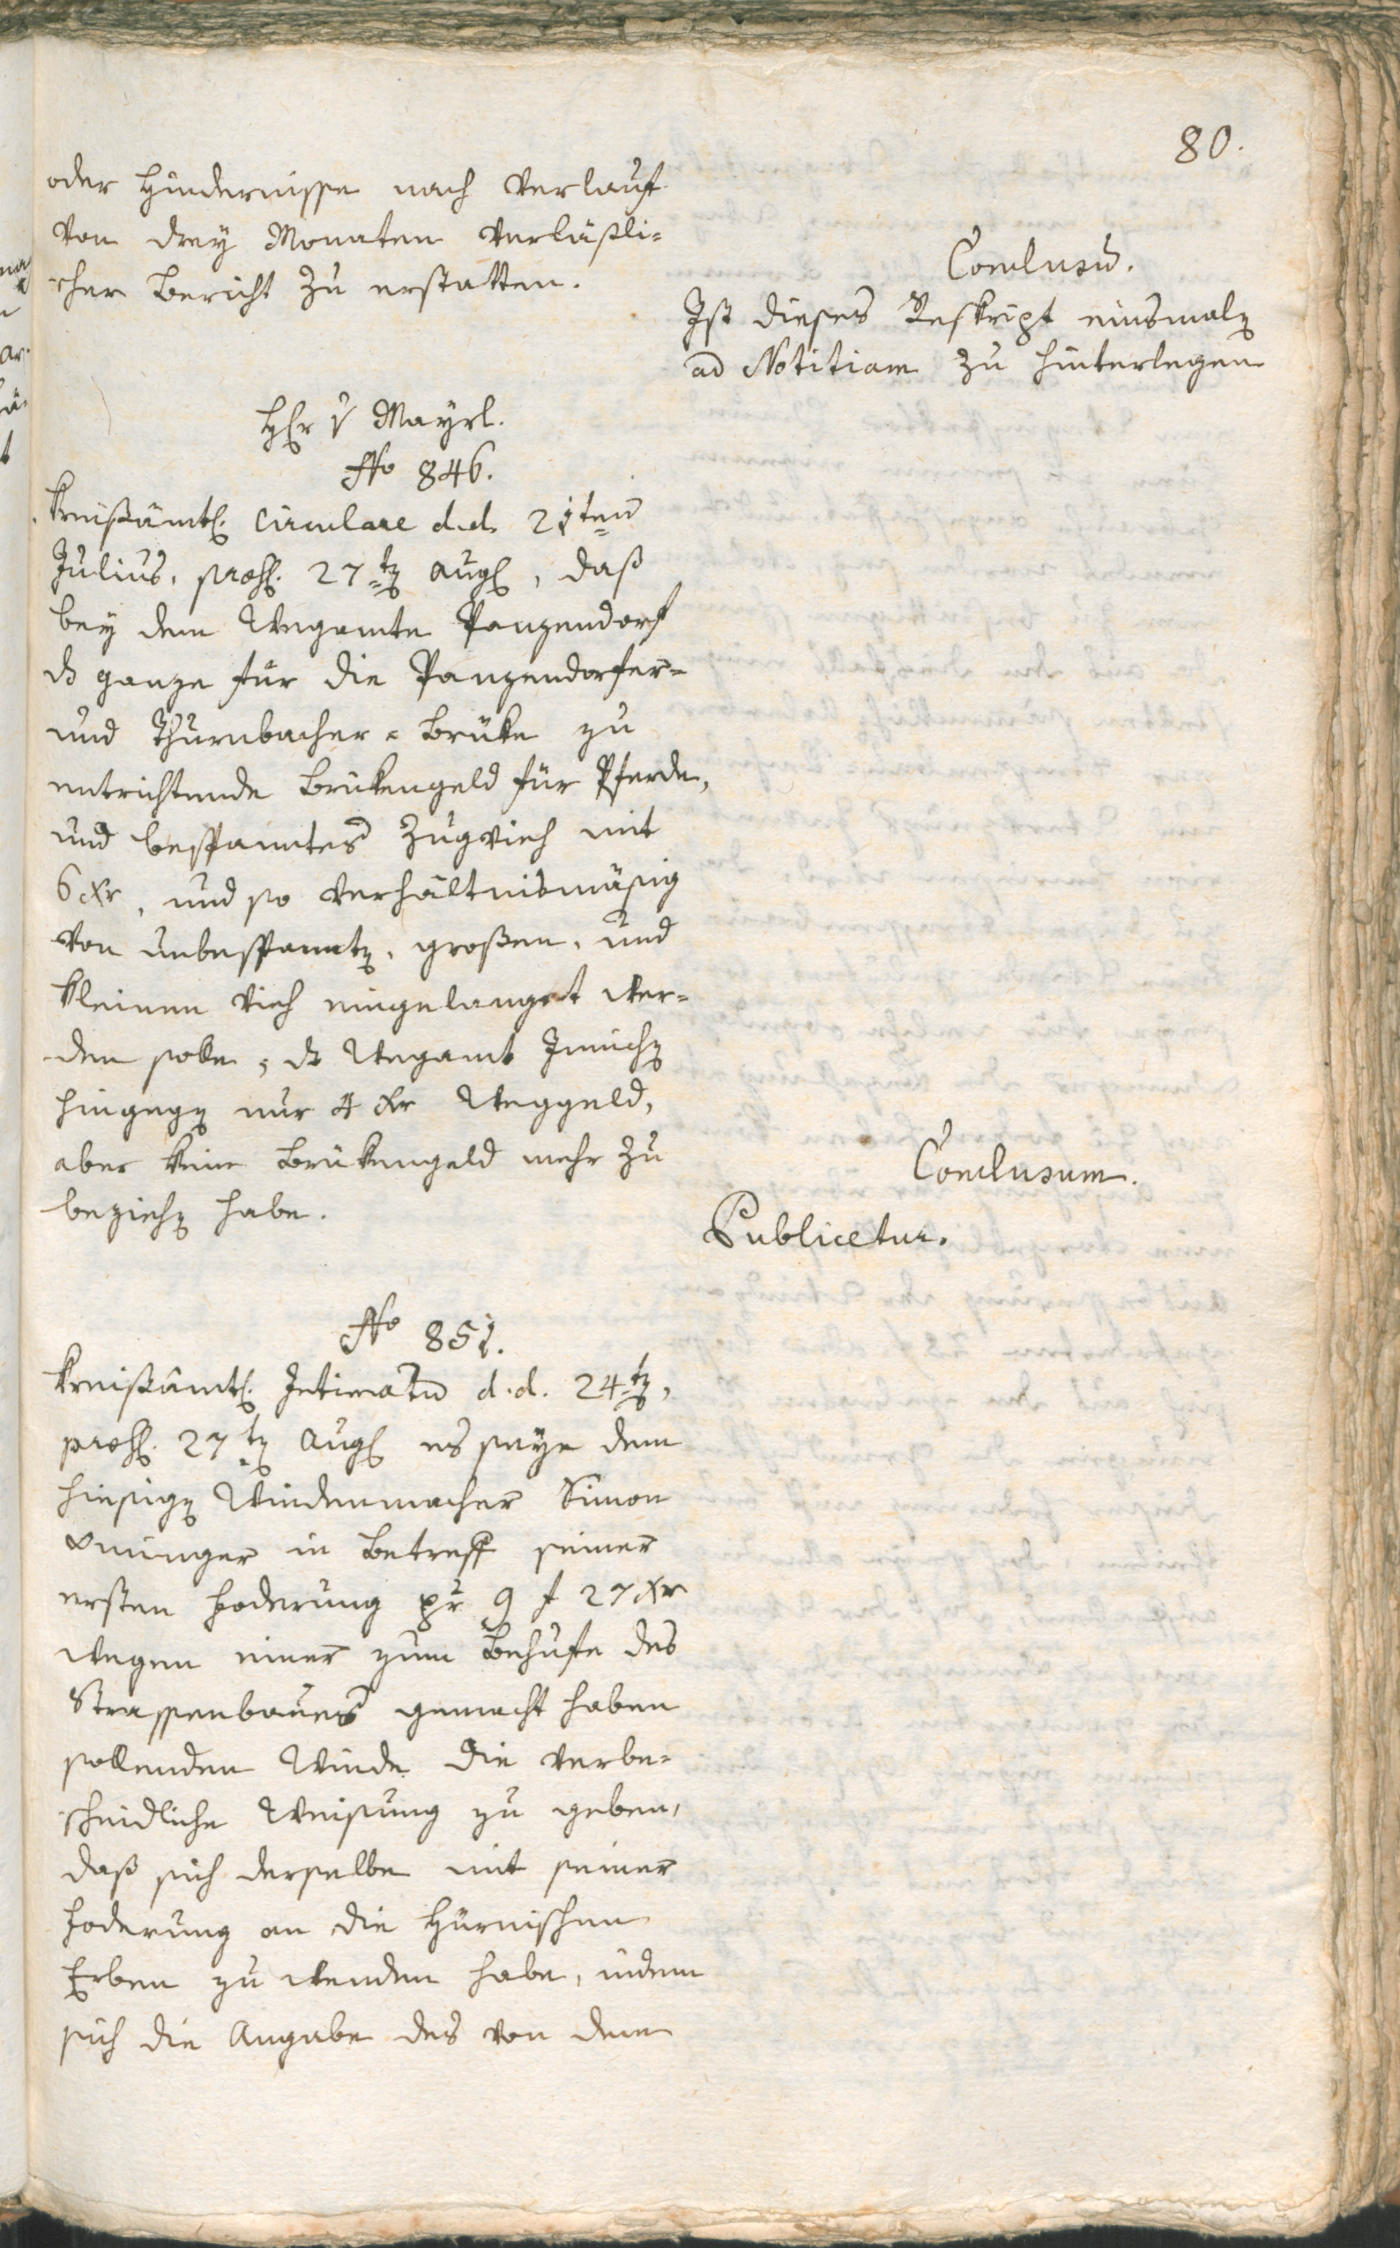 80.
oder Hindernisse nach Verlauf
von drey Monaten verläßli-
cher Bericht zu erstatten.
Conclusū.
Ist dieses Reskript einsmalen
ad Notitiam zu hinterlegen
H͞r v Mayrl.
No 846.
Kreißämtl. Circulare d.d. 21ten
Julius, præs. 27ten Aug., daß
bey dem Wegamte Panzendorf
ds ganze für die Panzendorfer-
und Thurnbacher-Brüke zu
entrichtende Brükengeld für Pferde,
und bespanntes Zugvieh mit
6 xr, und so verhältnismäsig
von unbespannten, großen, und
kleinen Vieh eingelanget wer-
den solle, ds Wegamt Innichen
hingegen nur 4 xr Weggeld,
aber keine Brükengeld mehr zu
beziehen habe.
Conclusum.
Publicetur.
No 851.
Kreißämtl. Intimatū d.d. 24ten,
præs. 27ten Aug. es seye dem
hiesigen Windenmacher Simon
in Betreff seiner
ersten Foderung pr 9 f 27 xr
wegen einer zum Behufe des
Strassenbaues gemacht haben
sollenden Winde die verbe-
scheidliche Weisung zu geben,
daß sich derselbe mit seiner
Foderung an die Hürnischen
Erben zu wenden habe, indem
sich die Angabe des von dem